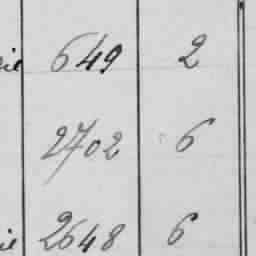 649 2
2702 6
2648 6